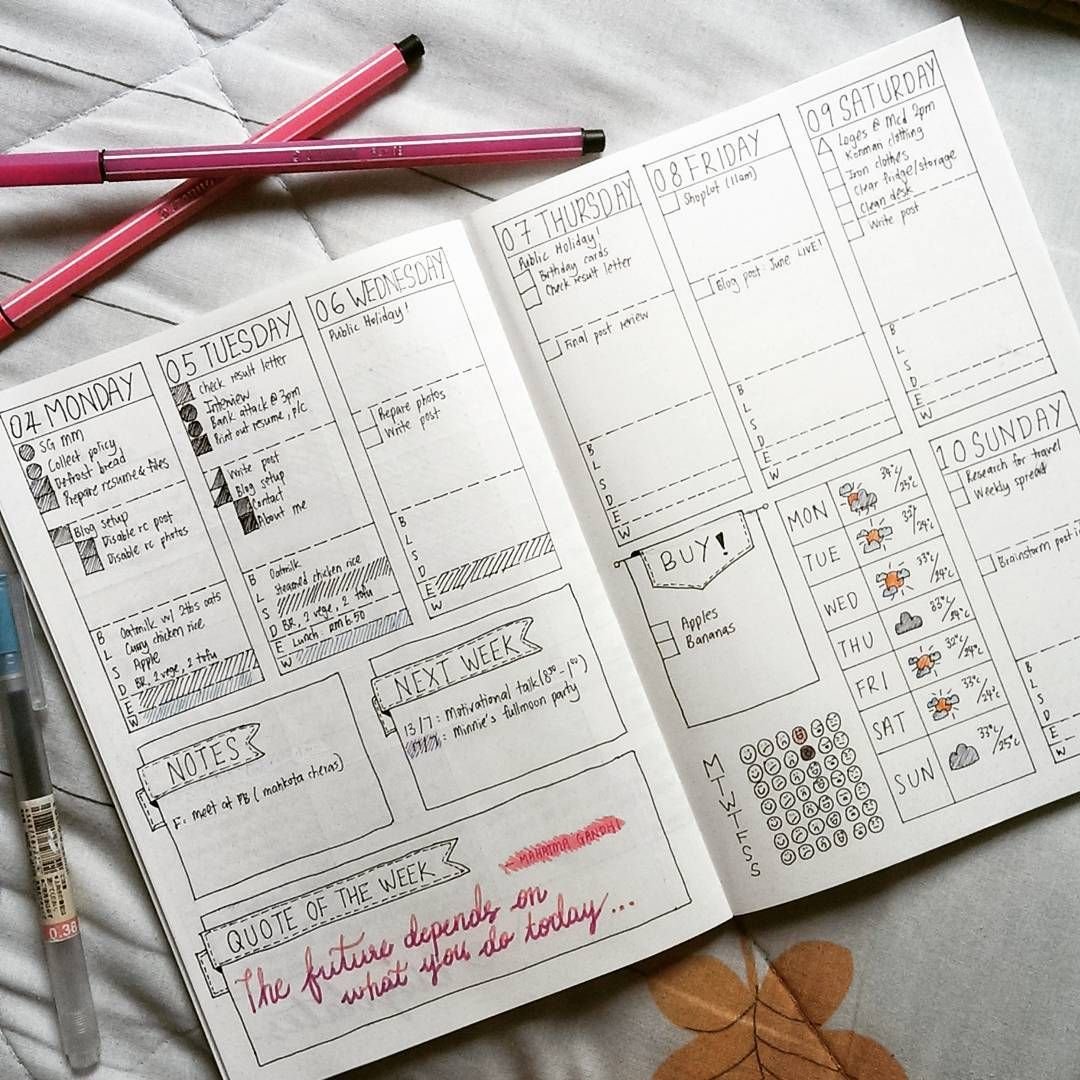 04 MONDAY
SG MM
Collect policy
Defrost bread
Prepare resume & files
Blog setup
Disable rc post
Disable rc photos
B Oatmilk w/ 2tbs oats
L Curry chicken rice
S Apple
D BR, 2 vege, 2 tofu
E
W
05 TUESDAY
check result letter
Interview
Bank attack @ 3pm
Print out resume, plc
Write post
Blog setup
Contact
About me
B Oatmilk
L Steamed chicken rice
S
D BR, 2 vege, 2 tofu
E Lunch: RM 6.50
W
06 WEDNESDAY
Public Holiday!
Prepare photos
Write post
B
L
S
D
E
W
NOTES
F: meet at PB (mahkota cheras)
NEXT WEEK
13/7: Motivational talk (8
: Minnie's fullmoon party
QUOTE OF THE WEEK
MAHATMA GANDHI
The future depends on
what you do today...
07 THURSDAY
Public Holiday!
Birthday cards
Check result letter
Final post review
B
L
S
D
E
W
08 FRIDAY
Shoplot (11am)
Blog post: June LIVE!
B
L
S
D
E
W
09 SATURDAY
Loges @ Mcd 2pm
Konman clothing
Iron clothes
Clear fridge/storage
Clean desk
Write post
B
L
S
D
E
W
10 SUNDAY
Research for travel
Weekly spread
Brainstorm post
B
L
S
D
E
W
BUY!
Apples
Bananas
MON 34°c/25°c
TUE 32°/24°c
WED 33°c/24°c
THU 33°c/24°c
FRI 32°c/24°c
SAT 33°c/24°c
SUN 33°c/25°c
M
T
W
T
F
S
S
0.38